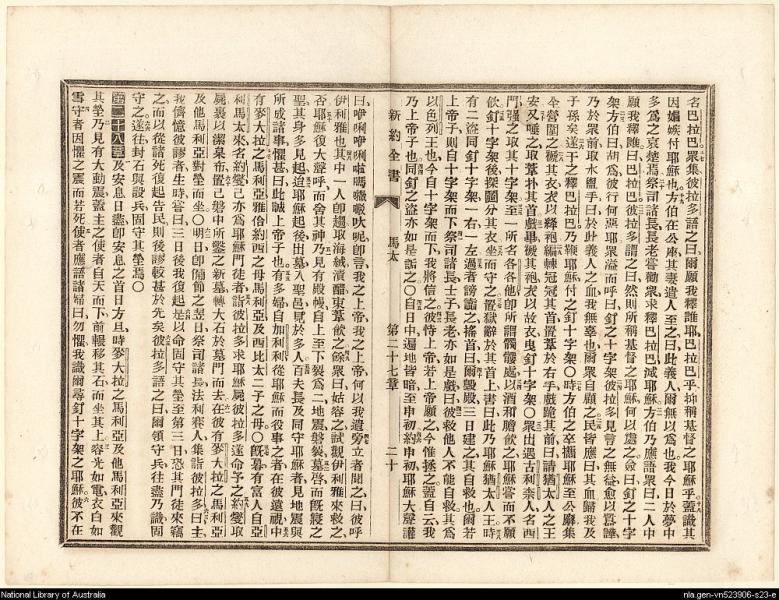 名巴拉巴衆集彼拉多語之曰爾願我釋誰耶巴拉巴乎抑稱基督之耶穌乎蓋識其
因媢嫉付耶穌也方伯在公座其妻遣人至之曰此義人爾無以爲也我今日於夢中
多爲之哀楚焉祭司諸長長老嘗勸衆求釋巴拉巴滅耶穌方伯乃應語衆曰二人中
願我釋誰曰巴拉巴彼拉多謂之曰然則所稱基督之耶穌何以處之僉曰釘之十字
架方伯曰胡爲彼行何惡耶衆溢而呼曰釘之十字架彼拉多見嘗之無益愈以囂譁
乃於衆前取水盥手曰於此義人之血我無辜也爾衆自顧之民皆應曰其血歸我及
子孫矣遂于之釋巴拉巴乃鞭耶穌付之釘十字架〇時方伯之卒攜耶穌至公廨集
全營圍之褫其衣衣以絳袍編棘冕冠其首置葦於右手戲跪其前曰請猶太人之王
安又唾之取葦扑其首戲畢褫其袍衣以故衣曳釘十字架〇衆出遇古利奈人名西
門强之取其十字架至一所名各各他卽所謂髑髏處以酒和膽飲之耶穌嘗而不願
飲釘十字架後探鬮分其衣坐而守之置獄辭於其首上書曰此乃耶穌猶太人王時
有二盜同釘十字架一右一左過者謗讟之搖首曰爾毁殿三日建之其自救也爾若
上帝子則自十字架而下祭司諸長士子長老亦如是戲曰彼救他人不能自救其爲
以色列王也今自十字架而下我將信之彼恃上帝若上帝願之今惟拯之蓋自云我
乃上帝子也同釘之盜亦如是詬之〇自日中遍地皆暗至申初約申初耶穌大聲灌
新約全書 馬太 第二十七章 二十
曰咿唎咿唎啦嗎㘔㘔呔呢卽言我之上帝我之上帝何以我遺旁立者聞之曰彼呼
伊利雅也其中一人卽趨取海絨漬醯束葦飲之餘衆曰姑容之試觀伊利雅來救之
否耶穌復大聲呼而舍其神乃見有殿幔自上至下裂爲二地震磐裂墓啓而旣寢之
聖其身多見起迨耶穌起後出墓入聖邑見於多人百夫長及同守耶穌者見地震與
所成諸事懼甚曰此誠上帝子也有多婦自加利利從耶穌而役事之者在彼遠視中
有麥大拉之馬利亞雅各約西之母馬利亞及西比太二子之母〇旣暮有富人自亞
利馬太來名約瑟己亦爲耶穌門徒者詣彼拉多求耶穌屍彼拉多遂命予之約瑟取
屍裹以潔枲布置己磐中所鑿之新墓轉大石於墓門而去在彼有麥大拉之馬利亞
及他馬利亞對塋而坐〇明日卽備節之翌日祭司諸長法利賽人集詣彼拉多曰主
我儕憶彼謬者生時嘗曰三日後我復起是以命固守其塋至第三日恐其門徒來竊
之而以從諸死復起告民則後謬較甚於先矣彼拉多語之曰爾領守兵往盡乃識固
守之遂往封石與設兵固守其塋焉〇
第二十八章及安息日盡卽安息之首日方旦時麥大拉之馬利亞及他馬利亞來觀
其塋乃見有大動震蓋主之使者自天而下前輾移其石而坐其上容光如電衣白如
雪守者因懼之震而若死使者應語諸婦曰勿懼我識爾尋釘十字架之耶穌彼不在
National Library of Australia
nla.gen-vn523906-s23-e